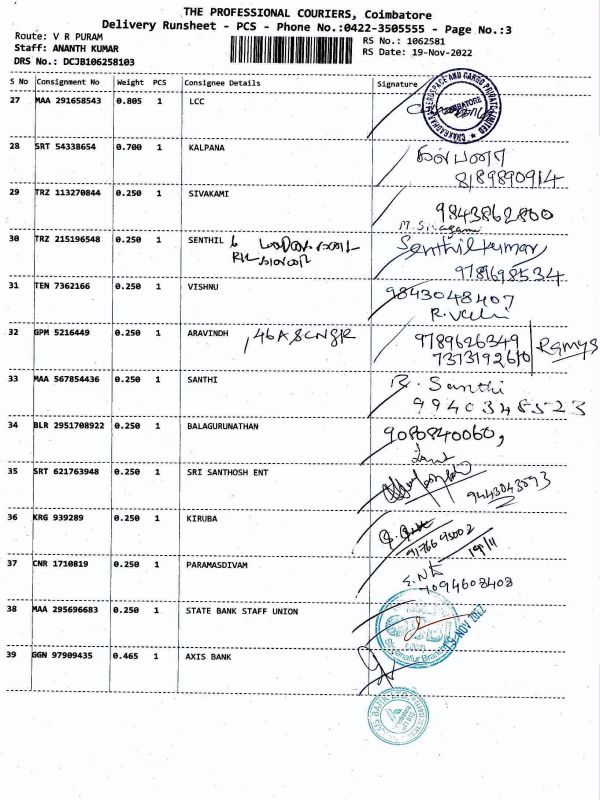 THE PROFESSIONAL COURIERS, Coimbatore
Delivery Runsheet - PCS - Phone No.:0422-3505555 - Page No.:3
Route: V R PURAM
Staff: ANANTH KUMAR
DRS No.: DCJB106258103
RS No.: 1062581
RS Date: 19-Nov-2022
S No Consignment No Weight PCS Consignee Details Signature
27 MAA 291658543 0.805 1 LCC
COIMBATORE
28 SRT 54338654 0.700 1 KALPANA
8189890914
29 TRZ 113270844 0.250 1 SIVAKAMI
9843862800
30 TRZ 215196548 0.250 1 SENTHIL
Senthilkumar
9789698534
31 TEN 7362166 0.250 1 VISHNU
9843048407
32 GPM 5216449 0.250 1 ARAVINDH
9789626349
Ramya
33 MAA 567854436 0.250 1 SANTHI
R. Santhi
9940348523
34 BLR 2951708922 0.250 1 BALAGURUNATHAN
9080840060,
35 SRT 621763948 0.250 1 SRI SANTHOSH ENT
9443043593
36 KRG 939289 0.250 1 KIRUBA
19/11
37 CNR 1710819 0.250 1 PARAMASDIVAM
7094608408
38 MAA 295696683 0.250 1 STATE BANK STAFF UNION
19 NOV 2022
39 GGN 97909435 0.465 1 AXIS BANK